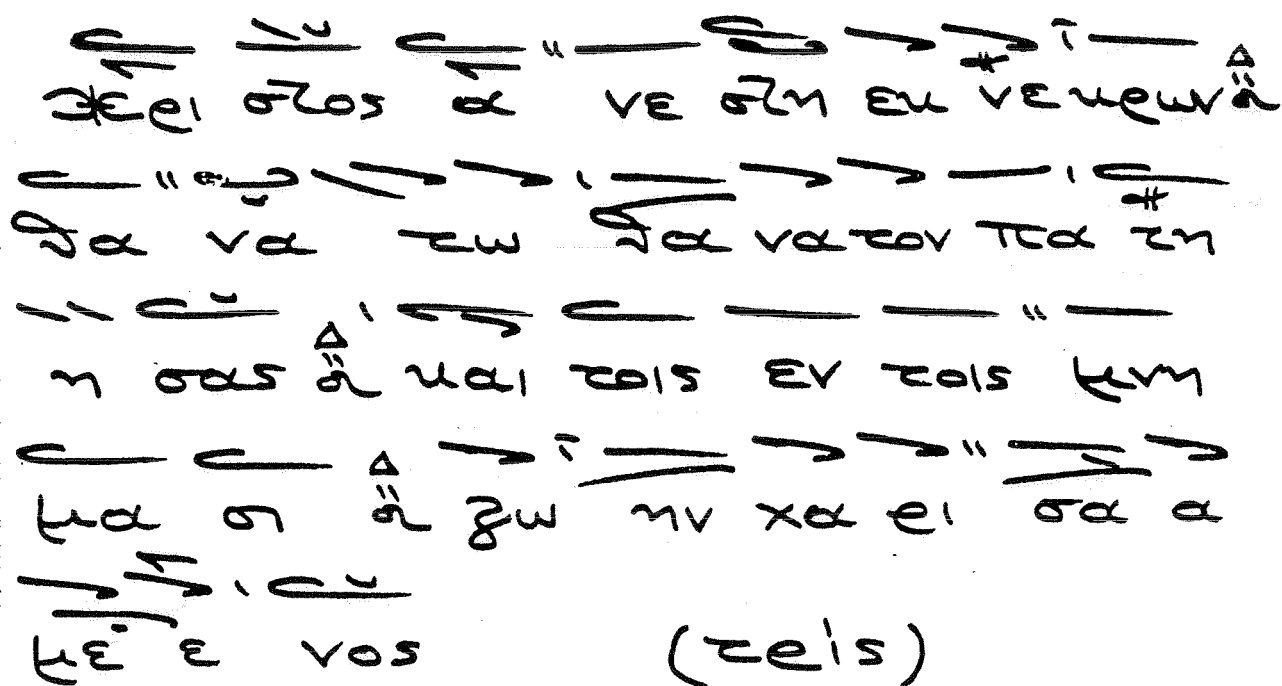 Χρι στος α νε στη εκ νε κρων
θα να τω θα να τον πα τη
η σας και τοις εν τοις μνη
μα σι ζω ην χα ρι σα α
με ε νος (τρίς)